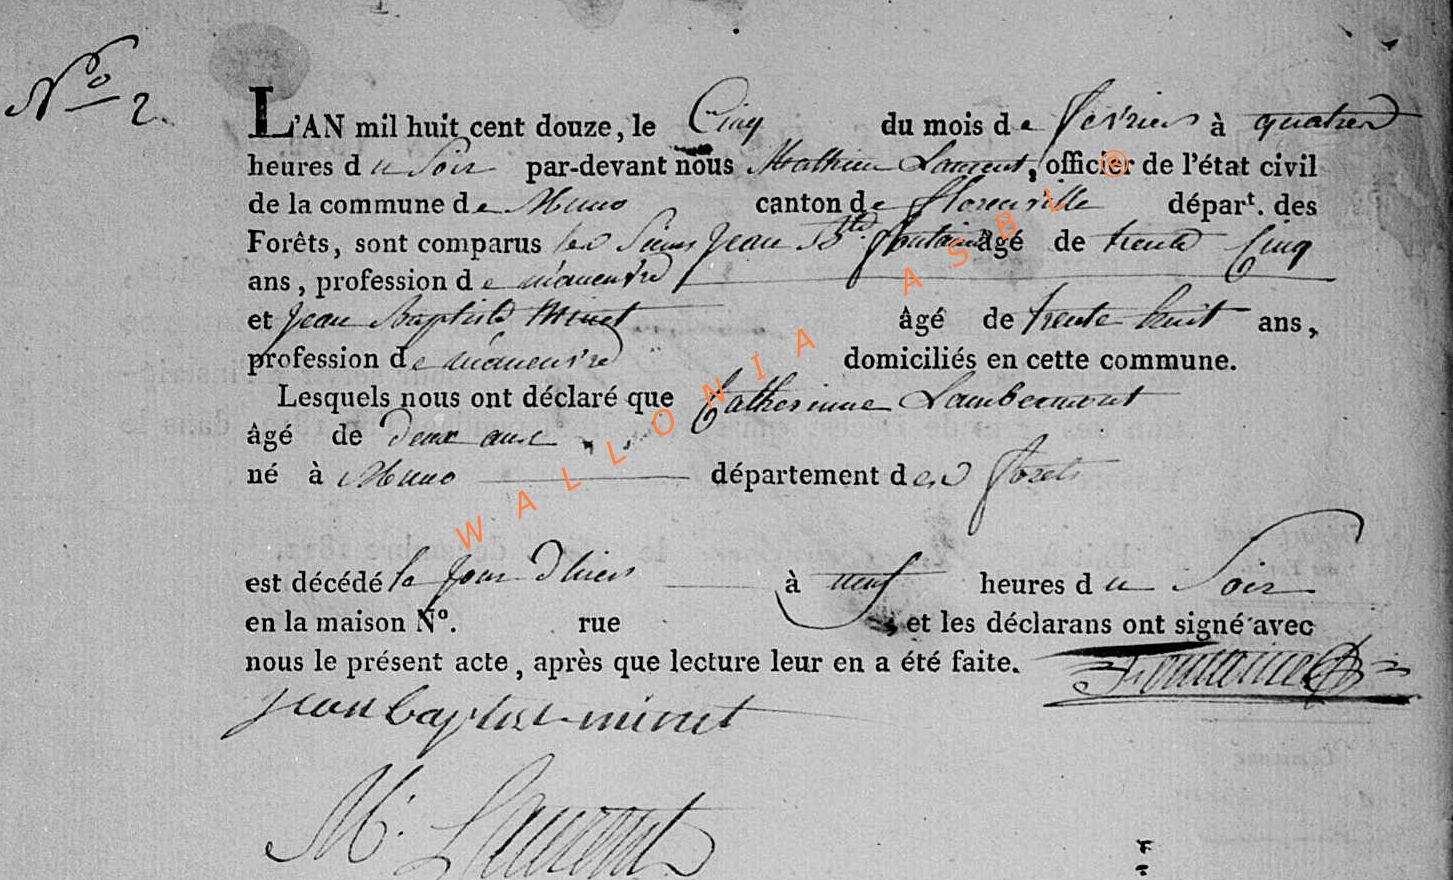 No 2.
L'AN mil huit cent douze, le Cinq du mois de février à quatre
heures du Soir par-devant nous Mathieu Laurent, officier de l'état civil
de la commune de Muno canton de florenville départ. des
Forêts, sont comparus les Sieurs Jean Bte fontaine âgé de trente Cinq
ans, profession de maneuvre
et Jean Baptiste Minet âgé de trente huit ans,
profession de maneuvre domiciliés en cette commune.
Lesquels nous ont déclaré que Catherinne Lambermont
âgé de Deux ans
né à Muno département des forets
est décédé le jour d'hier à neuf heures du Soir
en la maison No. rue et les déclarans ont signé avec
nous le présent acte, après que lecture leur en a été faite. Fontaine
jean baptist minet
M. Laurent
WALLONIA ASBL ®